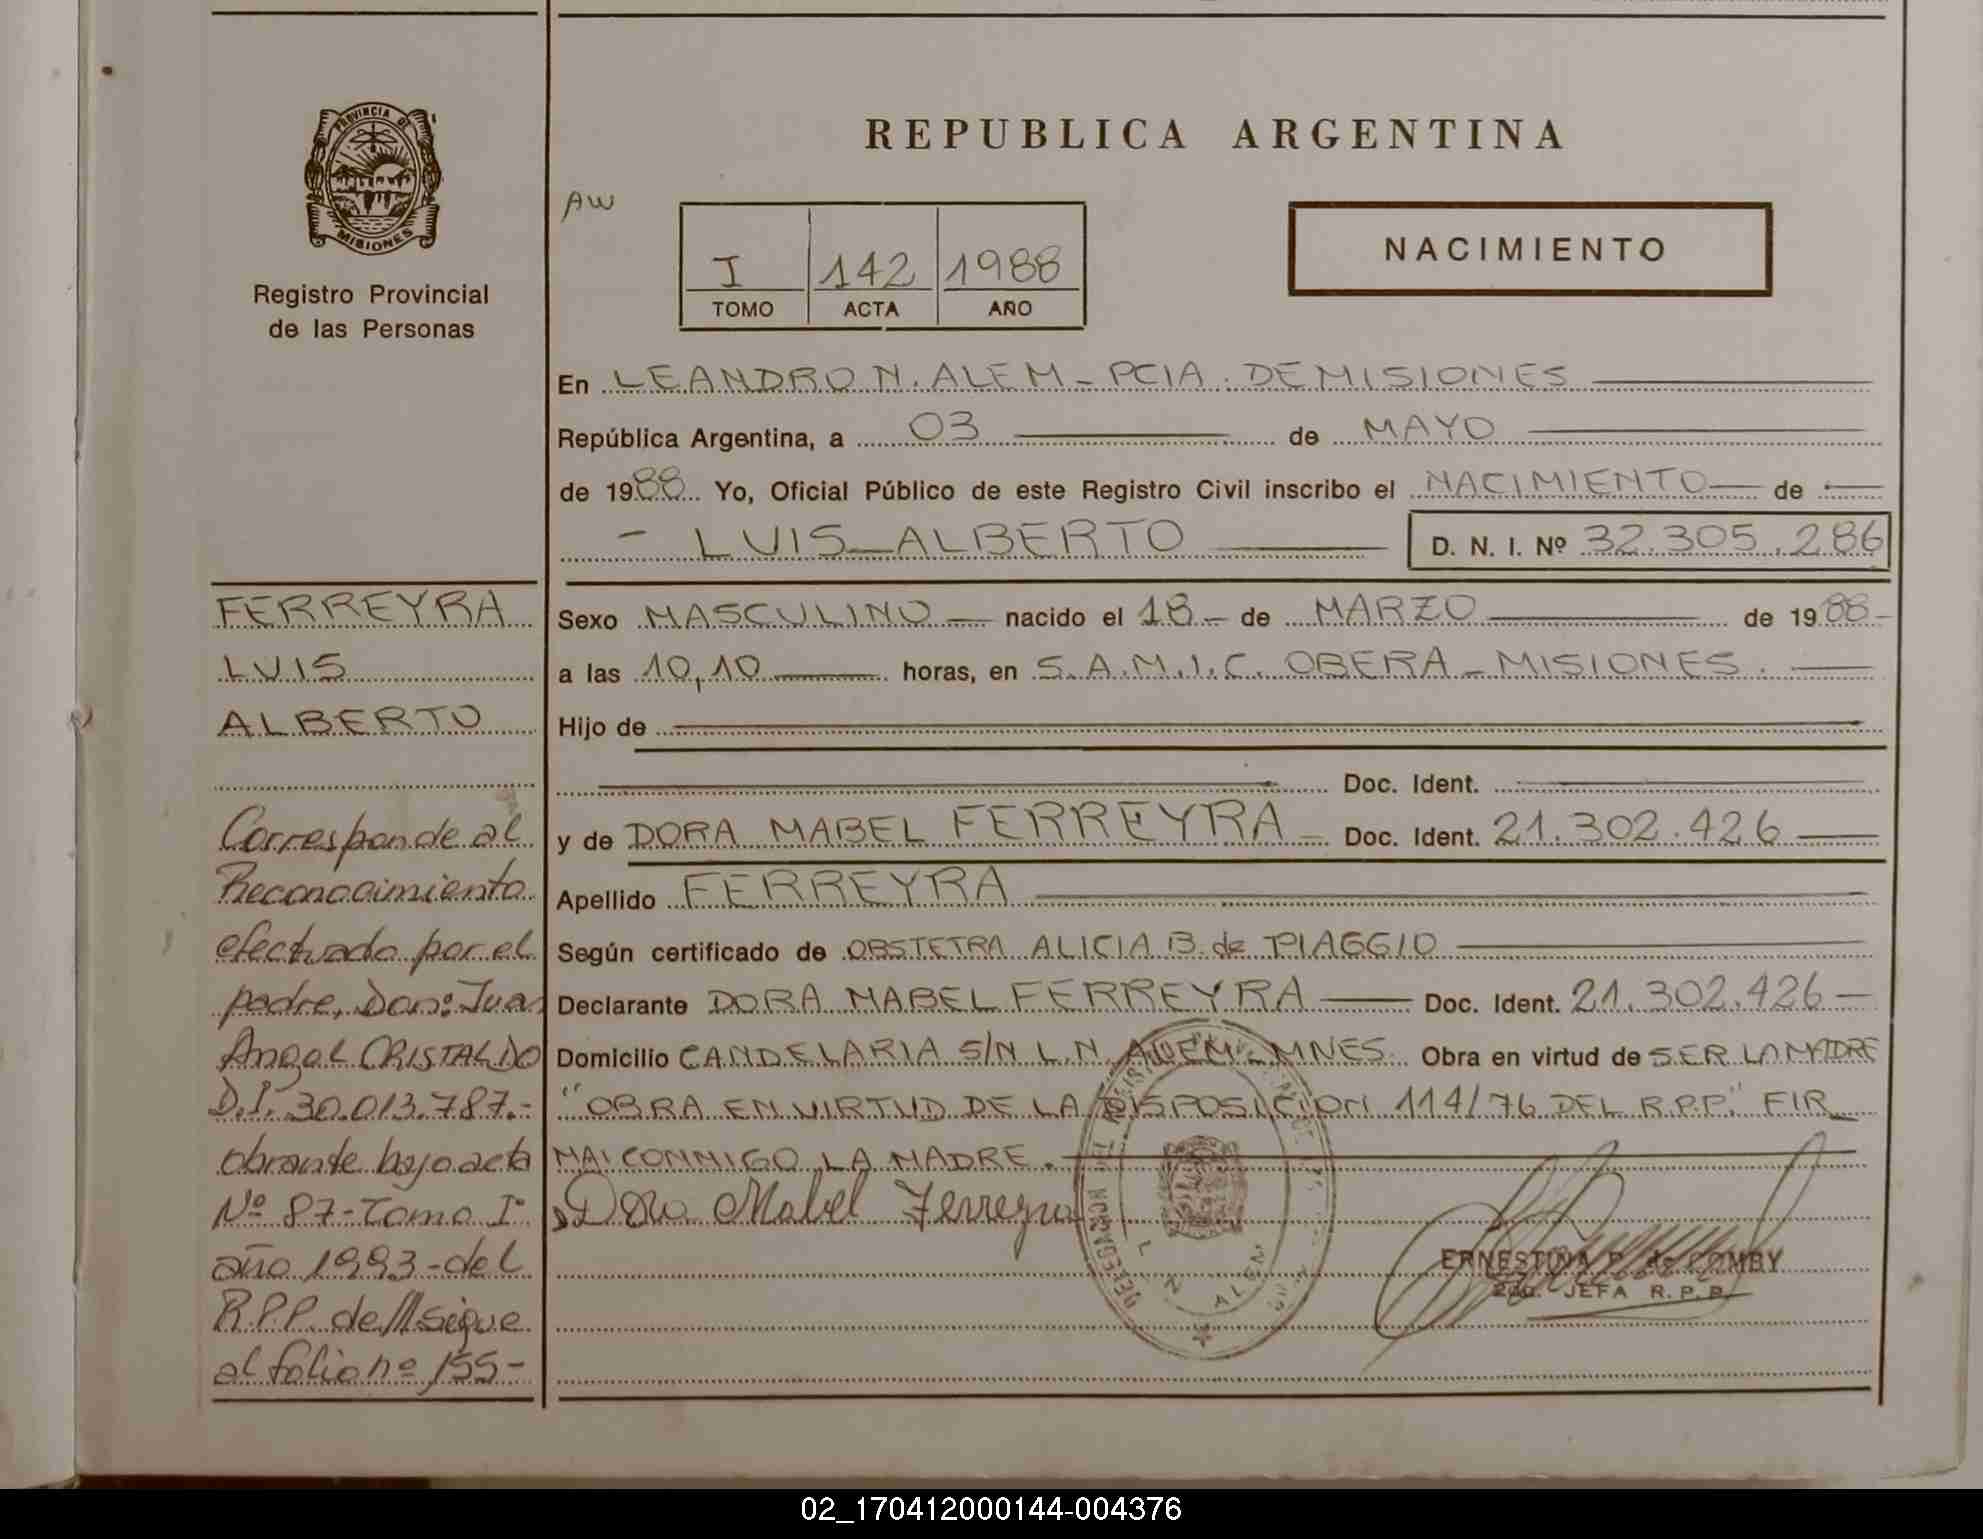 PROVINCIA DE
MISIONES
Registro Provincial
de las Personas
REPUBLICA ARGENTINA
AW
I 142 1988
TOMO ACTA AÑO
NACIMIENTO
En LEANDRO N. ALEM - PCIA. DE MISIONES
República Argentina, a 03 de MAYO
de 1988 Yo, Oficial Público de este Registro Civil inscribo el NACIMIENTO de
- LUIS ALBERTO D. N. I. Nº 32.305.286
FERREYRA
LUIS
ALBERTO
Corresponde al
Reconocimiento
efectuado por el
padre, Don: Juan
Angel CRISTALDO
D.I. 30.013.787.-
obrante bajo acta
Nº 87-Tomo Iº
año 1993-del
R.P.P. de// sigue
al folio nº 155-
Sexo MASCULINO nacido el 18 - de MARZO de 1988-
a las 10,10 horas, en S.A.M.I.C. OBERA - MISIONES.
Hijo de
Doc. Ident.
y de DORA MABEL FERREYRA - Doc. Ident. 21.302.426
Apellido FERREYRA
Según certificado de OBSTETRA ALICIA B. de PIAGGIO
Declarante DORA MABEL FERREYRA Doc. Ident. 21.302.426 -
Domicilio CANDELARIA S/N L.N. ALEM - MNES. Obra en virtud de SER LA MADRE
"OBRA EN VIRTUD DE LA DISPOSICION 114/76 DEL R.P.P." FIR_
MA: CONMIGO LA MADRE.
Dora Mabel Ferreyra
DELEGACION
L. N. ALEM
ERNESTINA P. de COMBY
2da. JEFA R.P.P.
02_170412000144-004376